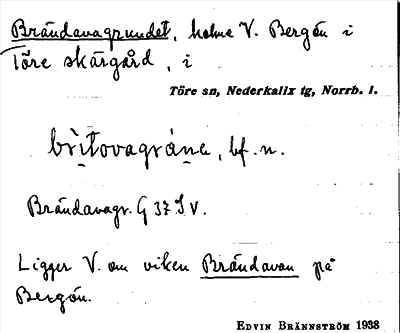 Brändavagrundet, holme V. Bergön i
Töre skärgård, i
Töre sn, Nederkalix tg, Norrb. l.
brìtovagráne, bf. n.
Brändavagr. G 37 S V.
Ligger V. om viken Brändavan på
Bergön.
EDVIN BRÄNNSTRÖM 1938